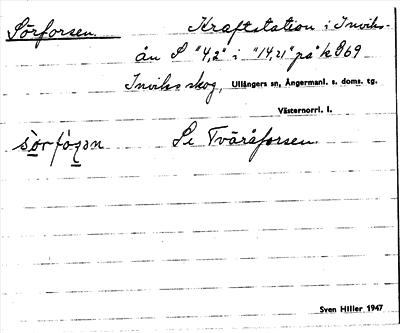 Sörforsen. Kraftstation i Inviks-
ån S "4,2" i "14,21" på k 869
Inviks skog, Ullångers sn, Ångermanl. s. doms. tg.
Västernorrl. l.
Se Tväråforsen.
Sven Hiller 1947